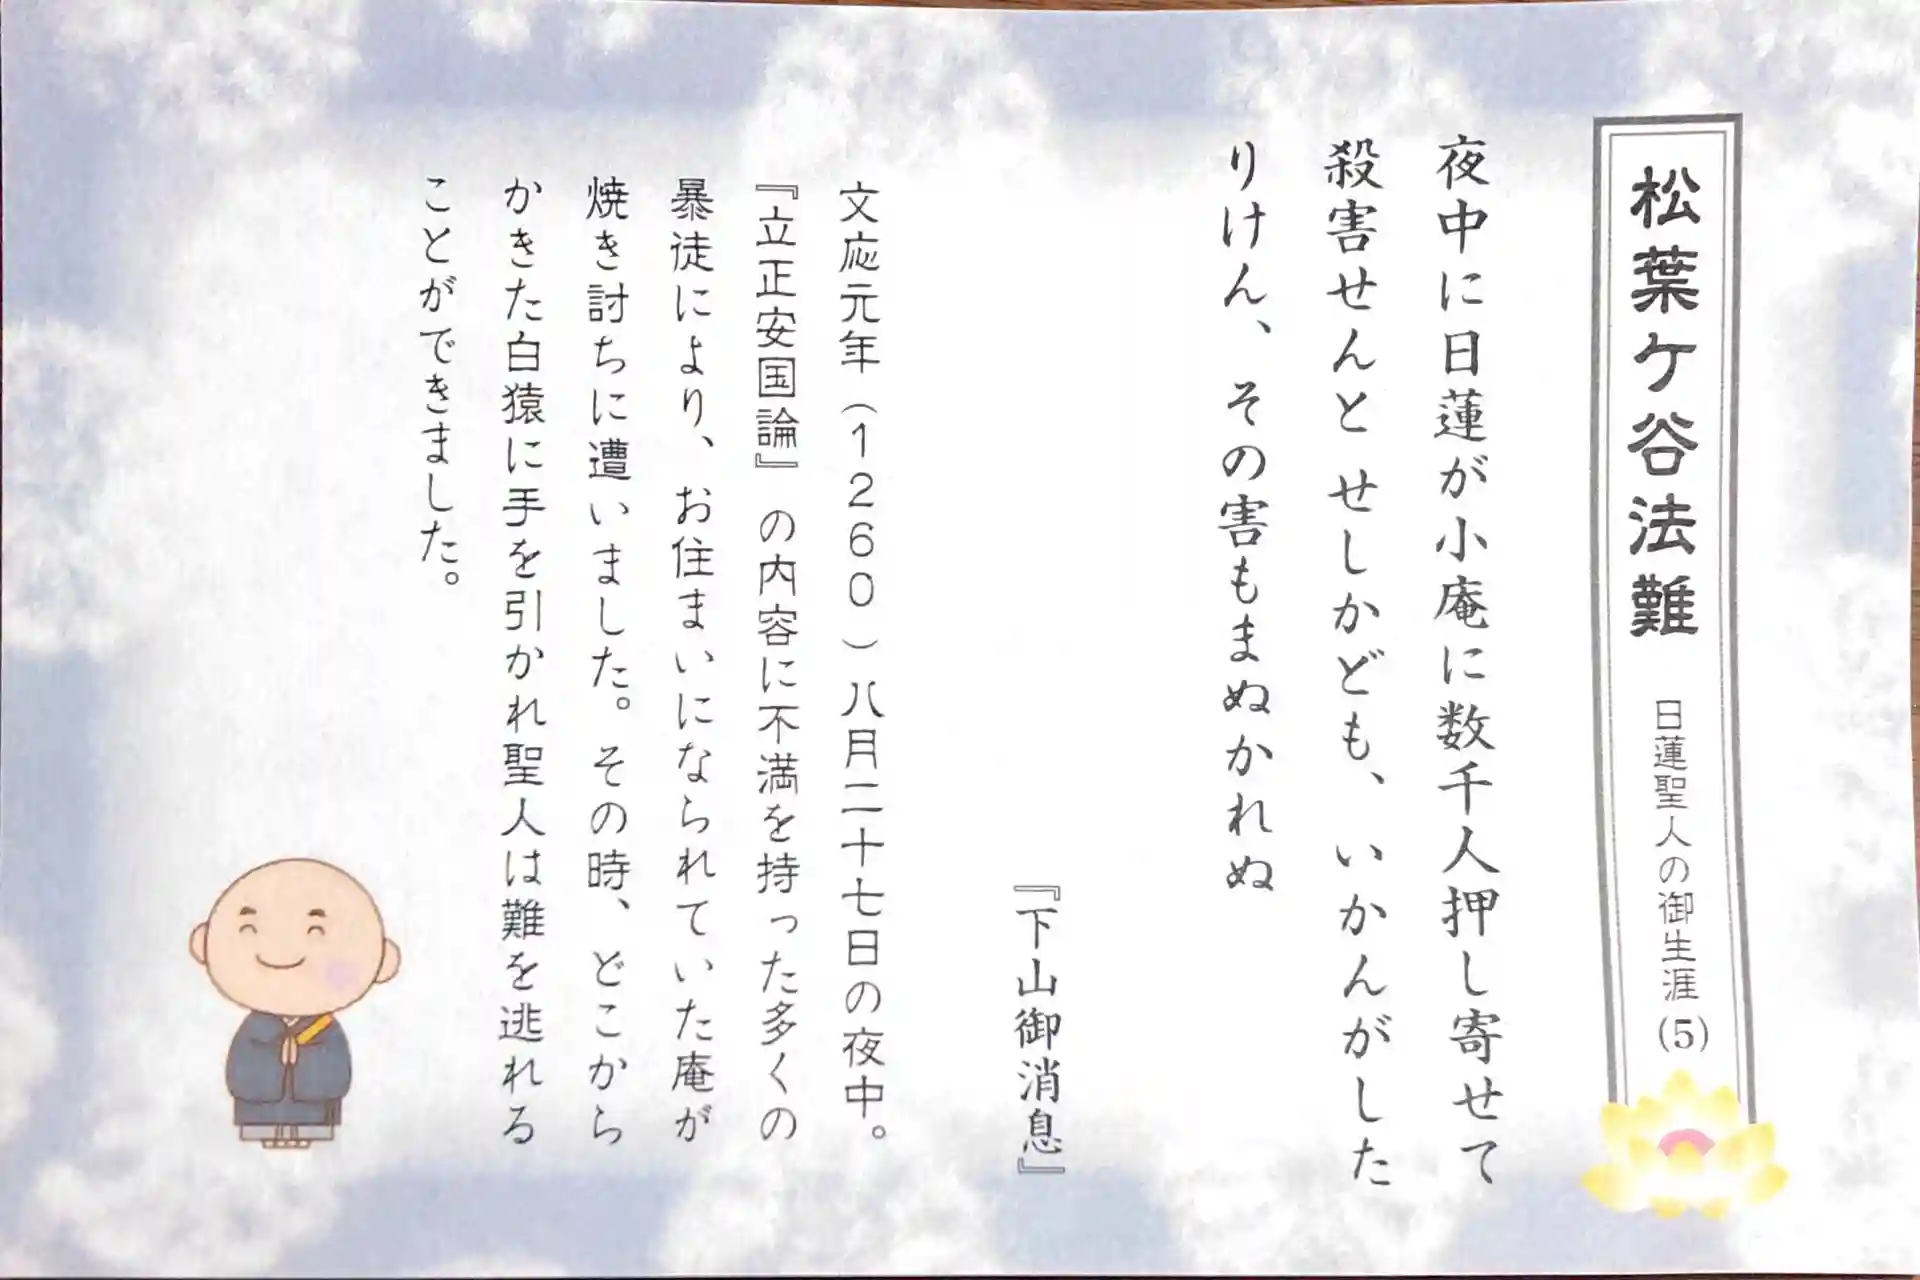 松葉ケ谷法難 日蓮聖人の御生涯(5)
夜中に日蓮が小庵に数千人押し寄せて
殺害せんとせしかども、いかんがした
りけん、その害もまぬかれぬ
『下山御消息』
文応元年(1260)八月二十七日の夜中。
『立正安国論』の内容に不満を持った多くの
暴徒により、お住まいになられていた庵が
焼き討ちに遭いました。その時、どこから
かきた白猿に手を引かれ聖人は難を逃れる
ことができました。